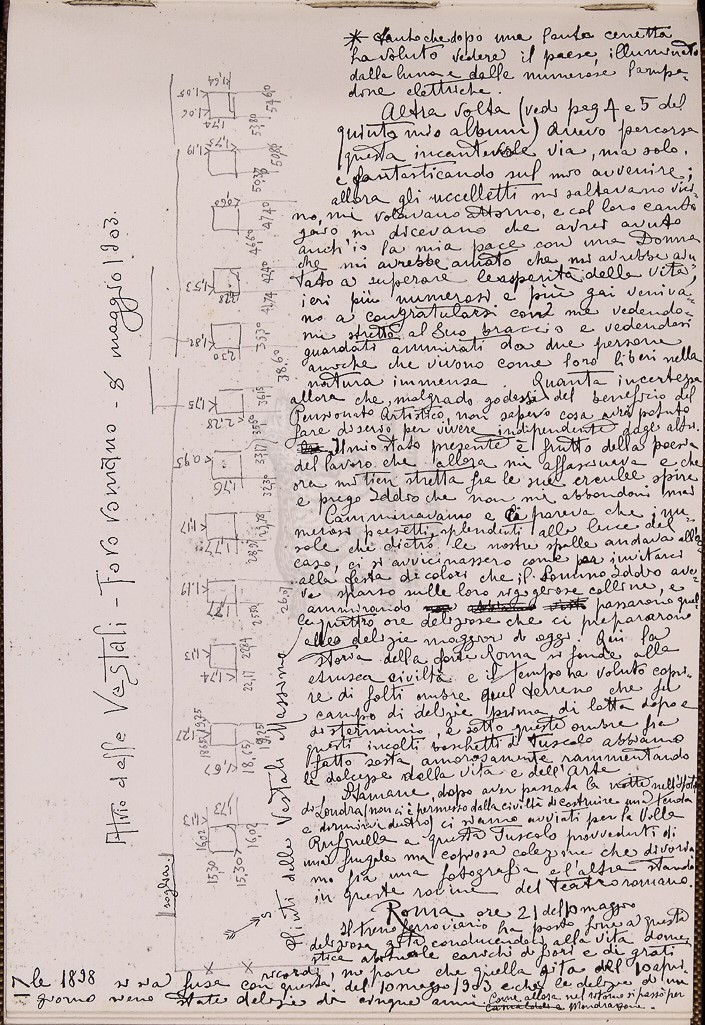 * tanto che dopo una lauta cenetta
ha voluto vedere il paese, illuminato
dalla luna e dalle numerose lampa-
done elettriche.
Altra volta (vedi pag 4 e 5 del
quinto mio album) avevo percorsa
questa incantevole via, ma solo,
e fantasticando sul mio avvenire;
allora gli uccelletti mi saltavano vici-
no, mi volavano attorno, e col loro canto
gaio mi dicevano che avrei avuto
anch'io la mia pace con una Donna
che mi avrebbe amato che mi avrebbe aiu-
tato a superare le asperità della vita,
ieri più numerosi e più gai veniva-
no a congratularsi con me vedendo-
mi stretto al Suo braccio e vedendosi
guardati ammirati da due persone
anche che vivono come loro liberi nella
natura immensa Quanta incertezza
allora che, malgrado godessi del beneficio del
Pensionato Artistico, non sapevo cosa avrei potuto
fare di serio per vivere indipendente dagli altri.
Il mio stato presente è frutto della poesia
del lavoro che allora mi affascinava e che
ora mi tien stretta fra le sue erculee spire
e prego Iddio che non mi abbandoni mai
Camminavamo e ci pareva che i nu-
merosi paesetti, splendenti alla luce del
sole che dietro le nostre spalle andava all'oc
caso, ci si avvicinassero come per invitarci
alla festa di colori che il Sommo Iddio ave-
va sparso sulle loro rigogliose colline, e
ammirando passarono quel-
le quattro ore deliziose che ci prepararono
alle delizie maggiori di oggi. Qui la
storia della forte Roma si fonde alla
etrusca civiltà e il tempo ha voluto copri-
re di folti ombre quel terreno che fu
campo di delizie prima, di lotta dopo e
di sterminio, e sotto queste ombre fra
questi incolti boschetti di Tuscolo abbiamo
fatto sosta amorosamente rammentando
le dolcezze della vita e dell'arte.
Stamane, dopo aver passata la notte nell'Hotel
di Londra (non ci è permesso dalla civiltà di costruire una tenda
e dormirci dentro) ci siamo avviati per la Villa
Rufinella a questo Tuscolo provveduti di
una frugale ma copiosa colazione che divoria-
mo fra una fotografia e l'altra stando
in queste rovine del Teatro romano.
Roma ore 21 del 10 maggio
Il treno ferroviario ha posto fine a questa
deliziosa gita conducendoci alla vita dome-
stica abituale carichi di fiori e di grati
ricordi, mi pare che quella gita del 10 apri-
le 1898 si sia fusa con questa del 10 maggio 1903 e che le delizie di un
giorno siano state delizie di cinque anni. Come allora nel ritorno si passò per
Camaldoli e Mondragone.
Atrio delle Vestali - Foro romano - 8 maggio 1903.
soglia
17